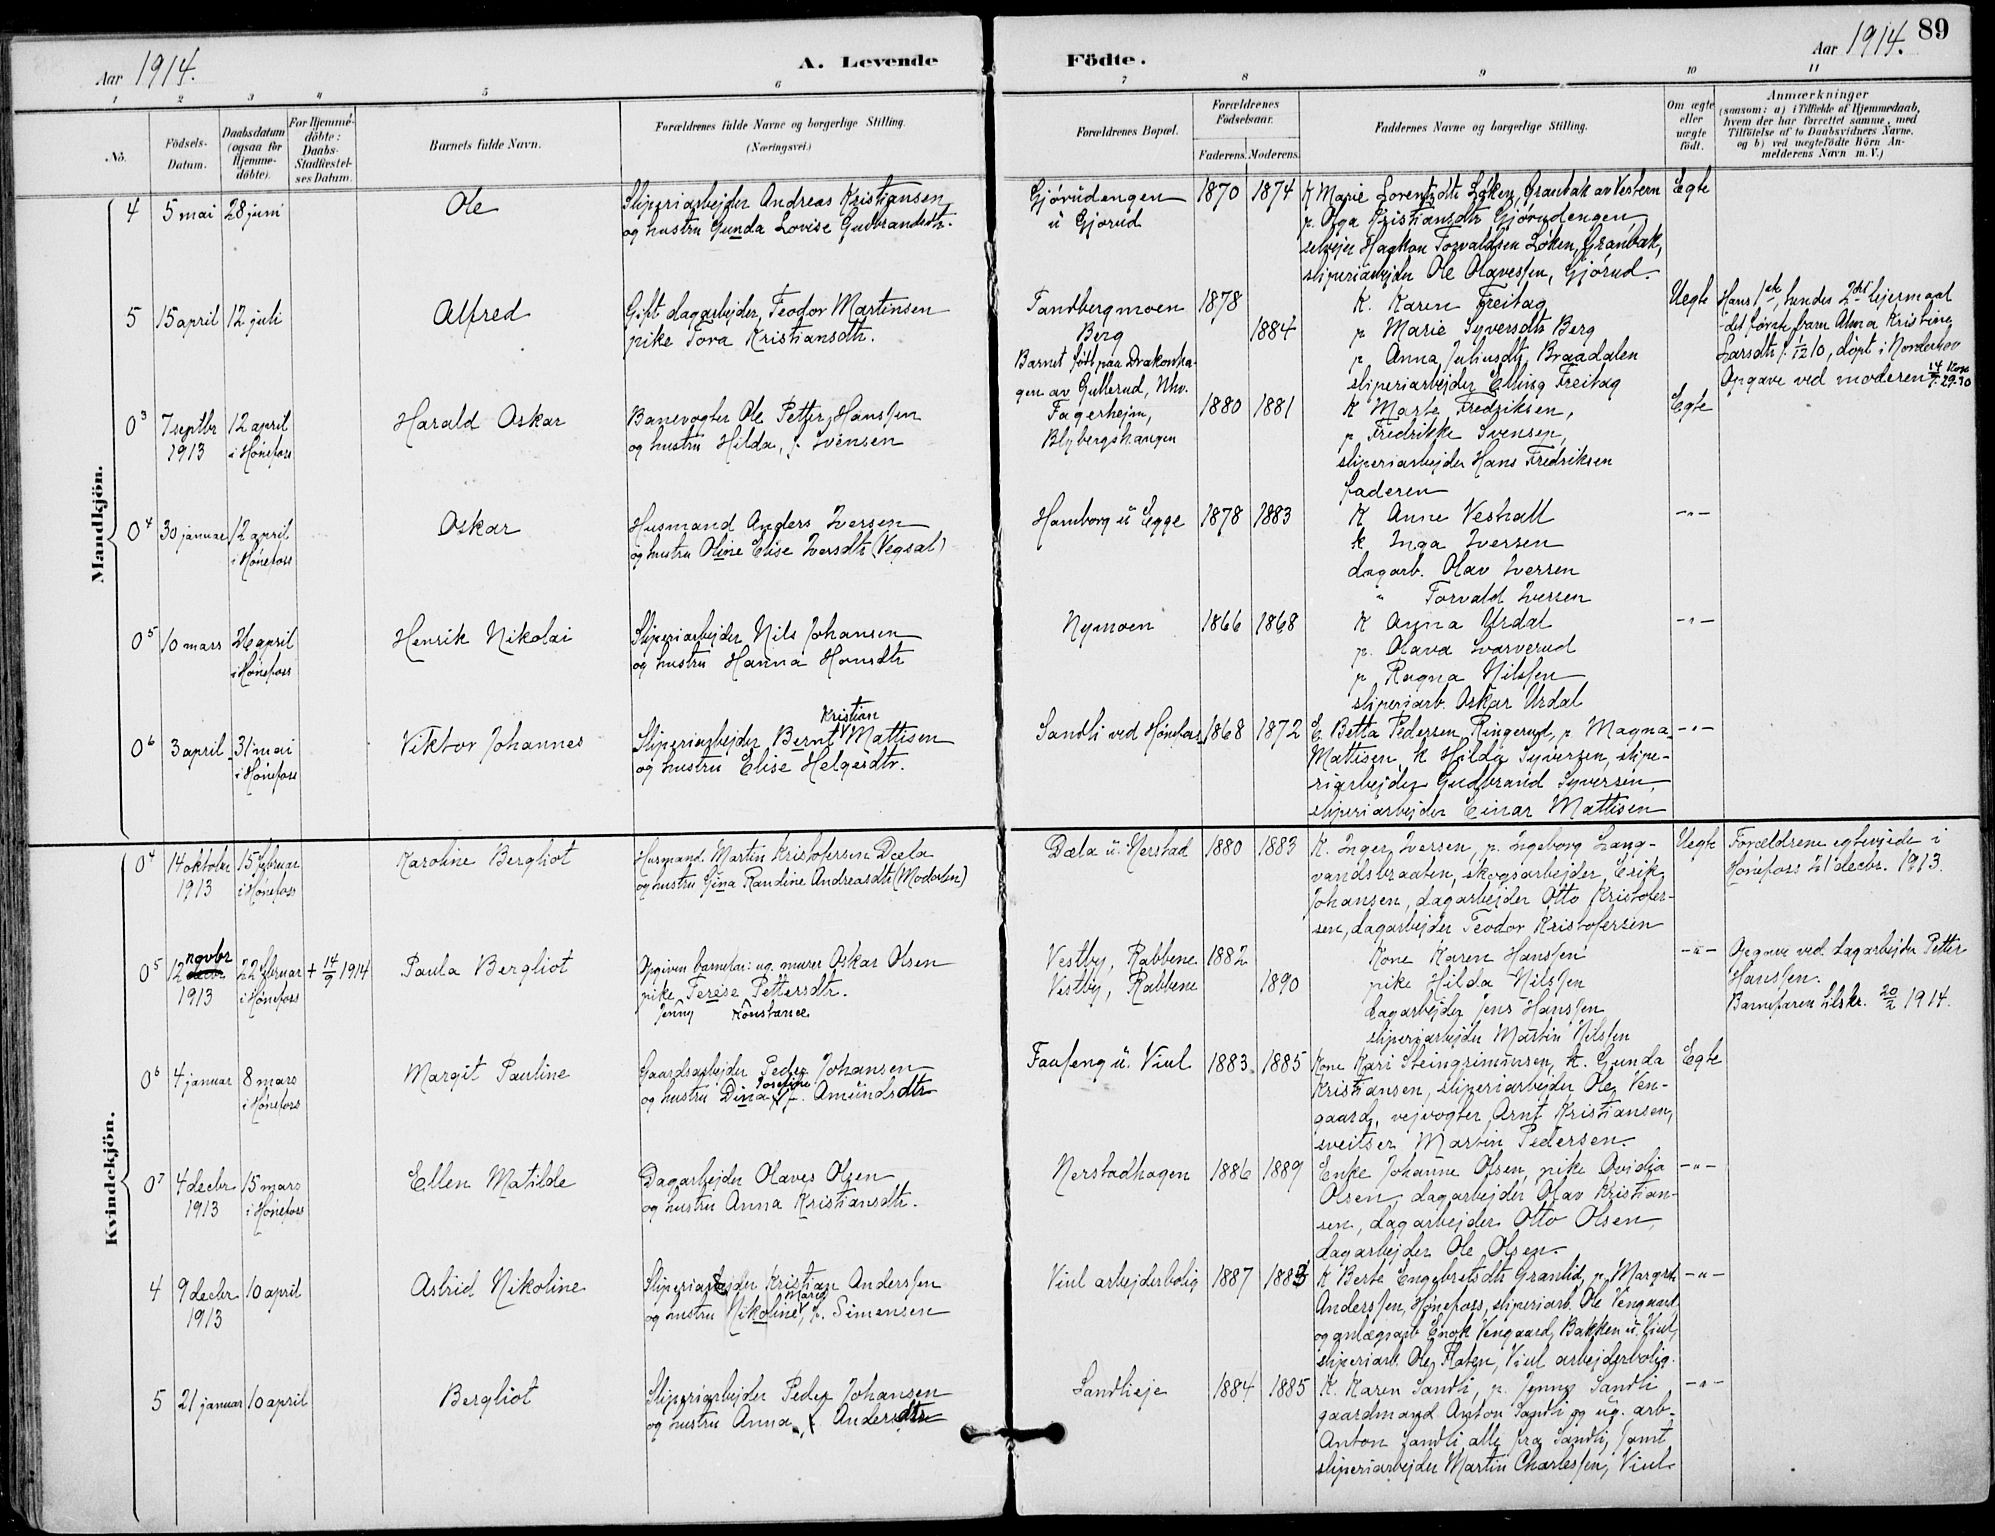 Aar 1914.
A. Levende
Födte.
Aar 1914. 89
1 2 3 4 5 6 7 8 9 10 11
No.
Födsels-
Datum.
Daabsdatum
(ogsaa for
Hjemme-
döbte).
For Hjemme-
döbte:
Daabs-
Stadfæstel-
ses Datum.
Barnets fulde Navn.
Forældrenes fulde Navne og borgerlige Stilling.
(Næringsvei.)
Forældrenes Bopæl.
Forældrenes
Födselsaar.
Faderens. Moderens.
Faddernes Navne og borgerlige Stilling.
Om ægte
eller
uægte
födt.
Anmærkninger
(saasom: a) i Tilfælde af Hjemmedaab,
hvem der har forrettet samme, med
Tilföielse af to Daabsvidners Navne,
og b) ved uægtefödte Börn An-
melderens Navn m. V.)
Mandkjön.
4 5 mai 28 juni
Ole
Sliperiarbejder Andreas Kristiansen
og hustru Gunda Lovise Gulbrandsdtr.
Gjørudengen
u Gjørud
1870 1874
K Marie Lorentsdtr Løken, Granbak av Vestern
p. Olga Kristiansdtr Gjørudengen
selvejer Haakon Torvaldsen Løken, Granbak,
sliperiarbejder Ole Olavessen, Gjørud
Egte
5 15 april 12 juli
Alfred
Gift dagarbejder, Teodor Martinsen
pike Tora Kristiansdtr.
Tandbergmoen
Berg
Barnet født paa Drakonha-
gen av Gullerud, Nhv.
1878
1884
K. Karen Freitag
p Marie Syversdtr Berg
p. Anna Juliusdtr, Braadalen
sliperiarbejder Elling Freitag
Uegte
Hans 1ste hendes 2det lejermaal
det første barn Alma Kristine
Larsdtr f. 1/12 10, døpt i Norderhov
Opgave ved moderen
03 7 septbr 12 april
1913 i Hønefoss
Harald Oskar
Banevogter Ole Petter Hanssen
og hustru Hilda, f. Svensen
Fagerhejm,
Blybergshaugen
1880 1881
K Marte Fredriksen,
p Fredrikke Svensen,
sliperiarbejder Hans Fredriksen
faderen
Egte
04 30 januar 12 april
i Hønefoss
Oskar
Husmand Anders Iversen
og hustru Oline Elise Iversdtr (Vegsal)
Hamborg u Egge
1878 1883
K Anne Veshall
k Inga Iversen
dagarb. Olav Iversen
" Torvald Iversen
-"-
05 10 mars 26 april
i Hønefoss
Henrik Nikolai
Sliperiarbejder Nils Johansen
og hustru Hanna Hansdtr
Nymoen
1866 1868
K Anna Urdal
p. Olava Svarverud
p Ragna Nilssen
sliperiarb. Oskar Urdal
-"-
06 3 april 31 mai
i Hønefoss
Viktor Johannes
Kristian
Sliperiarbejder Bernt Mattisen
og hustru Elise Helgesdtr.
Sandli ved Hønefoss
1868 1872
E. Betta Pedersen Ringerud, p Magna
Mattisen, k Hilda Syversen, slipe-
riarbejder Gudbrand Syversen,
sliperiarbejder Einar Mattisen
-"-
Kvindekjön.
04 14 oktober 15 februar
1913 i Hønefoss
Karoline Bergliot
Husmand Martin Kristofersen Dæla
og hustru Gina Randine Andreasdtr (Modalen)
Dæla u. Nerstad
1880 1883
K. Inger Iversen, p. Ingeborg Lang-
vandsbraaten, skogsarbejder Erik
Johansen, dagarbejder Otto Kristofer-
sen, dagarbejder Teodor Kristofersen
Uegte
Forældrene egteviede i
Hønefoss 21 decbr. 1913.
novbr
05 12 decbr 22 februar + 14/9 1914
1913 i Hønefoss
Paula Bergliot
Opgiven barnefar: ug. murer Oskar Olsen
pike Terese Pettersdtr.
Jenny Konstance
Vestby, Rabbene
Vestby, Rabbene
1882
1890
Kone Karen Hanssen
pike Hilda Nilssen
dagarbejder Jens Hanssen
sliperiarbejder Martin Nilssen
-"-
Opgave ved dagarbejder Petter
Hanssen.
Barnefaren tilskr. 20/2 1914.
06 4 januar 8 mars
i Hønefoss
Margit Pauline
Gaardsarbejder Peder Johansen
Josefine
og hustru Dina f. Amundsdtr
Faafeng u. Viul
1883 1885
Kone Kari Steingrimunsen, k. Gunda
Kristiansen, sliperiarbejder Ole Ven-
gaard, vejvogter Arnt Kristiansen,
sveitser Martin Pedersen.
Egte
07 4 decbr 15 mars
1913 i Hønefoss
Ellen Matilde
Dagarbejder Olaves Olsen
og hustru Anna Kristiansdtr.
Nerstadhagen
1886 1889
Enke Johanne Olsen, pike Ovidia
Olsen, dagarbejder Olav Kristian-
sen, dagarbejder Otto Olsen,
dagarbejder Ole Olsen.
-"-
4 9 decbr 10 april
1913
Astrid Nikoline
Sliperiarbejder Kristian Anderssen
Marie
og hustru Nikoline, f. Simensen
Viul arbejderbolig
1887 1883
K Berte Engebretsdtr Granlid, p Margrete
Anderssen, Hønefoss, sliperiarb. Ole Vengaard
og anlægsarb Enok Vengaard, Bakken u. Viul,
sliperiarb. Ole Flaten, Viul arbejderbolig.
-"-
5 21 januar 10 april
Bergliot
Sliperiarbejder Peder Johansen
og hustru Anna, f. Andersdtr
Sandlieje
1884 1885
K. Karen Sandli, p. Jenny Sandli
gaardmand Anton Sandli og ug. arb.
Anton Sandli, alle fra Sandli, samt
sliperiarbejder Martin Charlessen, Viul
-"-